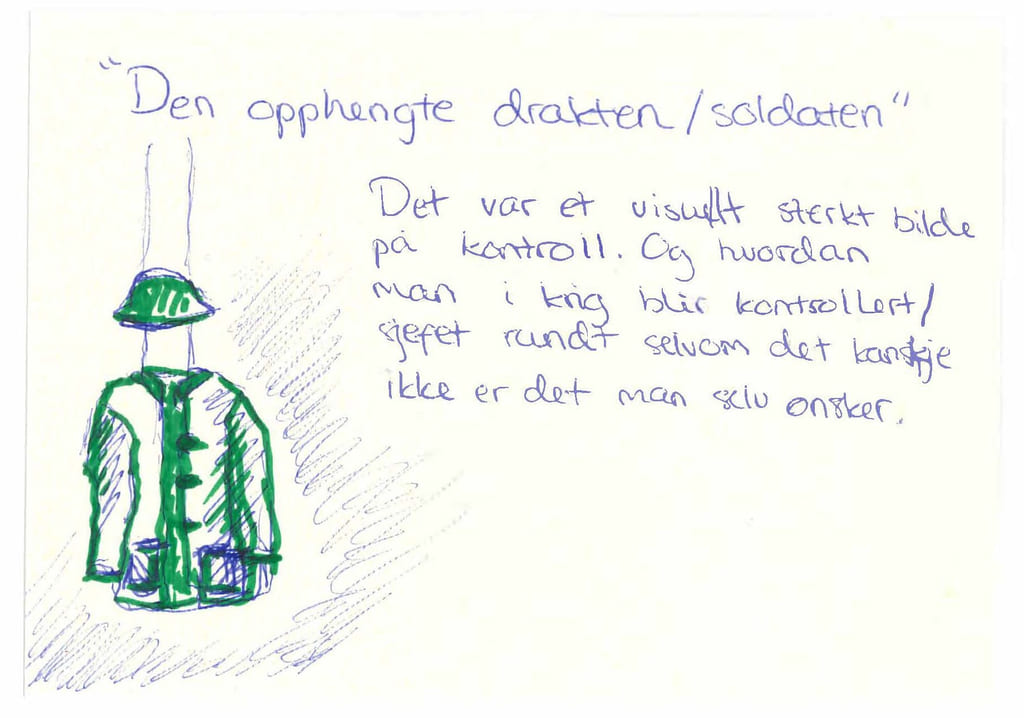 "Den opphengte drakten/soldaten"
Det var et visuelt sterkt bilde
på kontroll. Og hvordan
man i krig blir kontrollert/
sjefet rundt selvom det kanskje
ikke er det man selv ønsker.